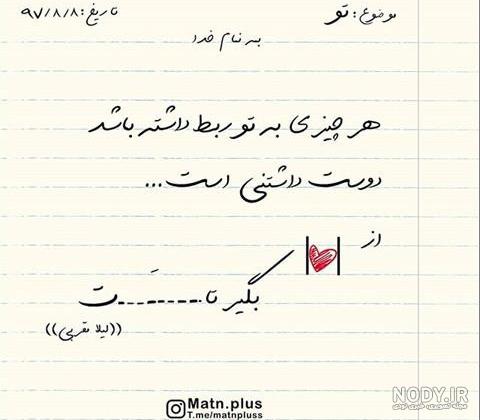 موضوع: تو
تاریخ: ۹۷/۸/۸
به نام خدا
هر چیزی به تو ربط داشته باشد
دوست داشتنی است...
از |❤|
بگیر تا َ---------ت
((لیلا مقربی))
Matn.plus
T.me/matnpluss
NODY.IR